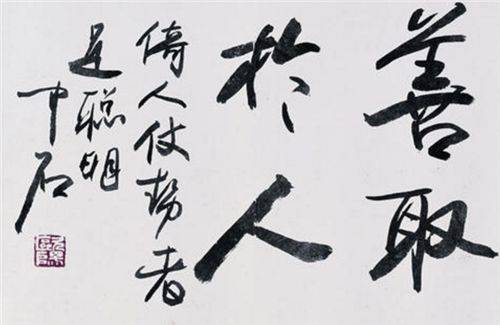 善取
於人
倚人仗势者
是聪明
中石